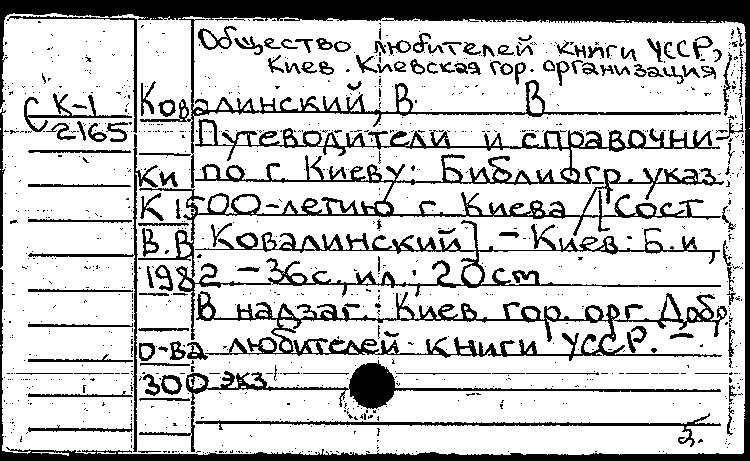 Общество любителей книги УССР,
Киев. Киевская гор. организация
С К-1
2165
Ковалинский, В В
Путеводители и справочни-
ки по г. Киеву: Библиогр. указ.
К 1500-летию г. Киева /[Сост
В.В. Ковалинский]. – Киев: Б.и,
1982. – 36с., ил.; 20см.
В надзаг.: Киев. гор. орг. Добр
о-ва любителей книги УССР. –
300 экз